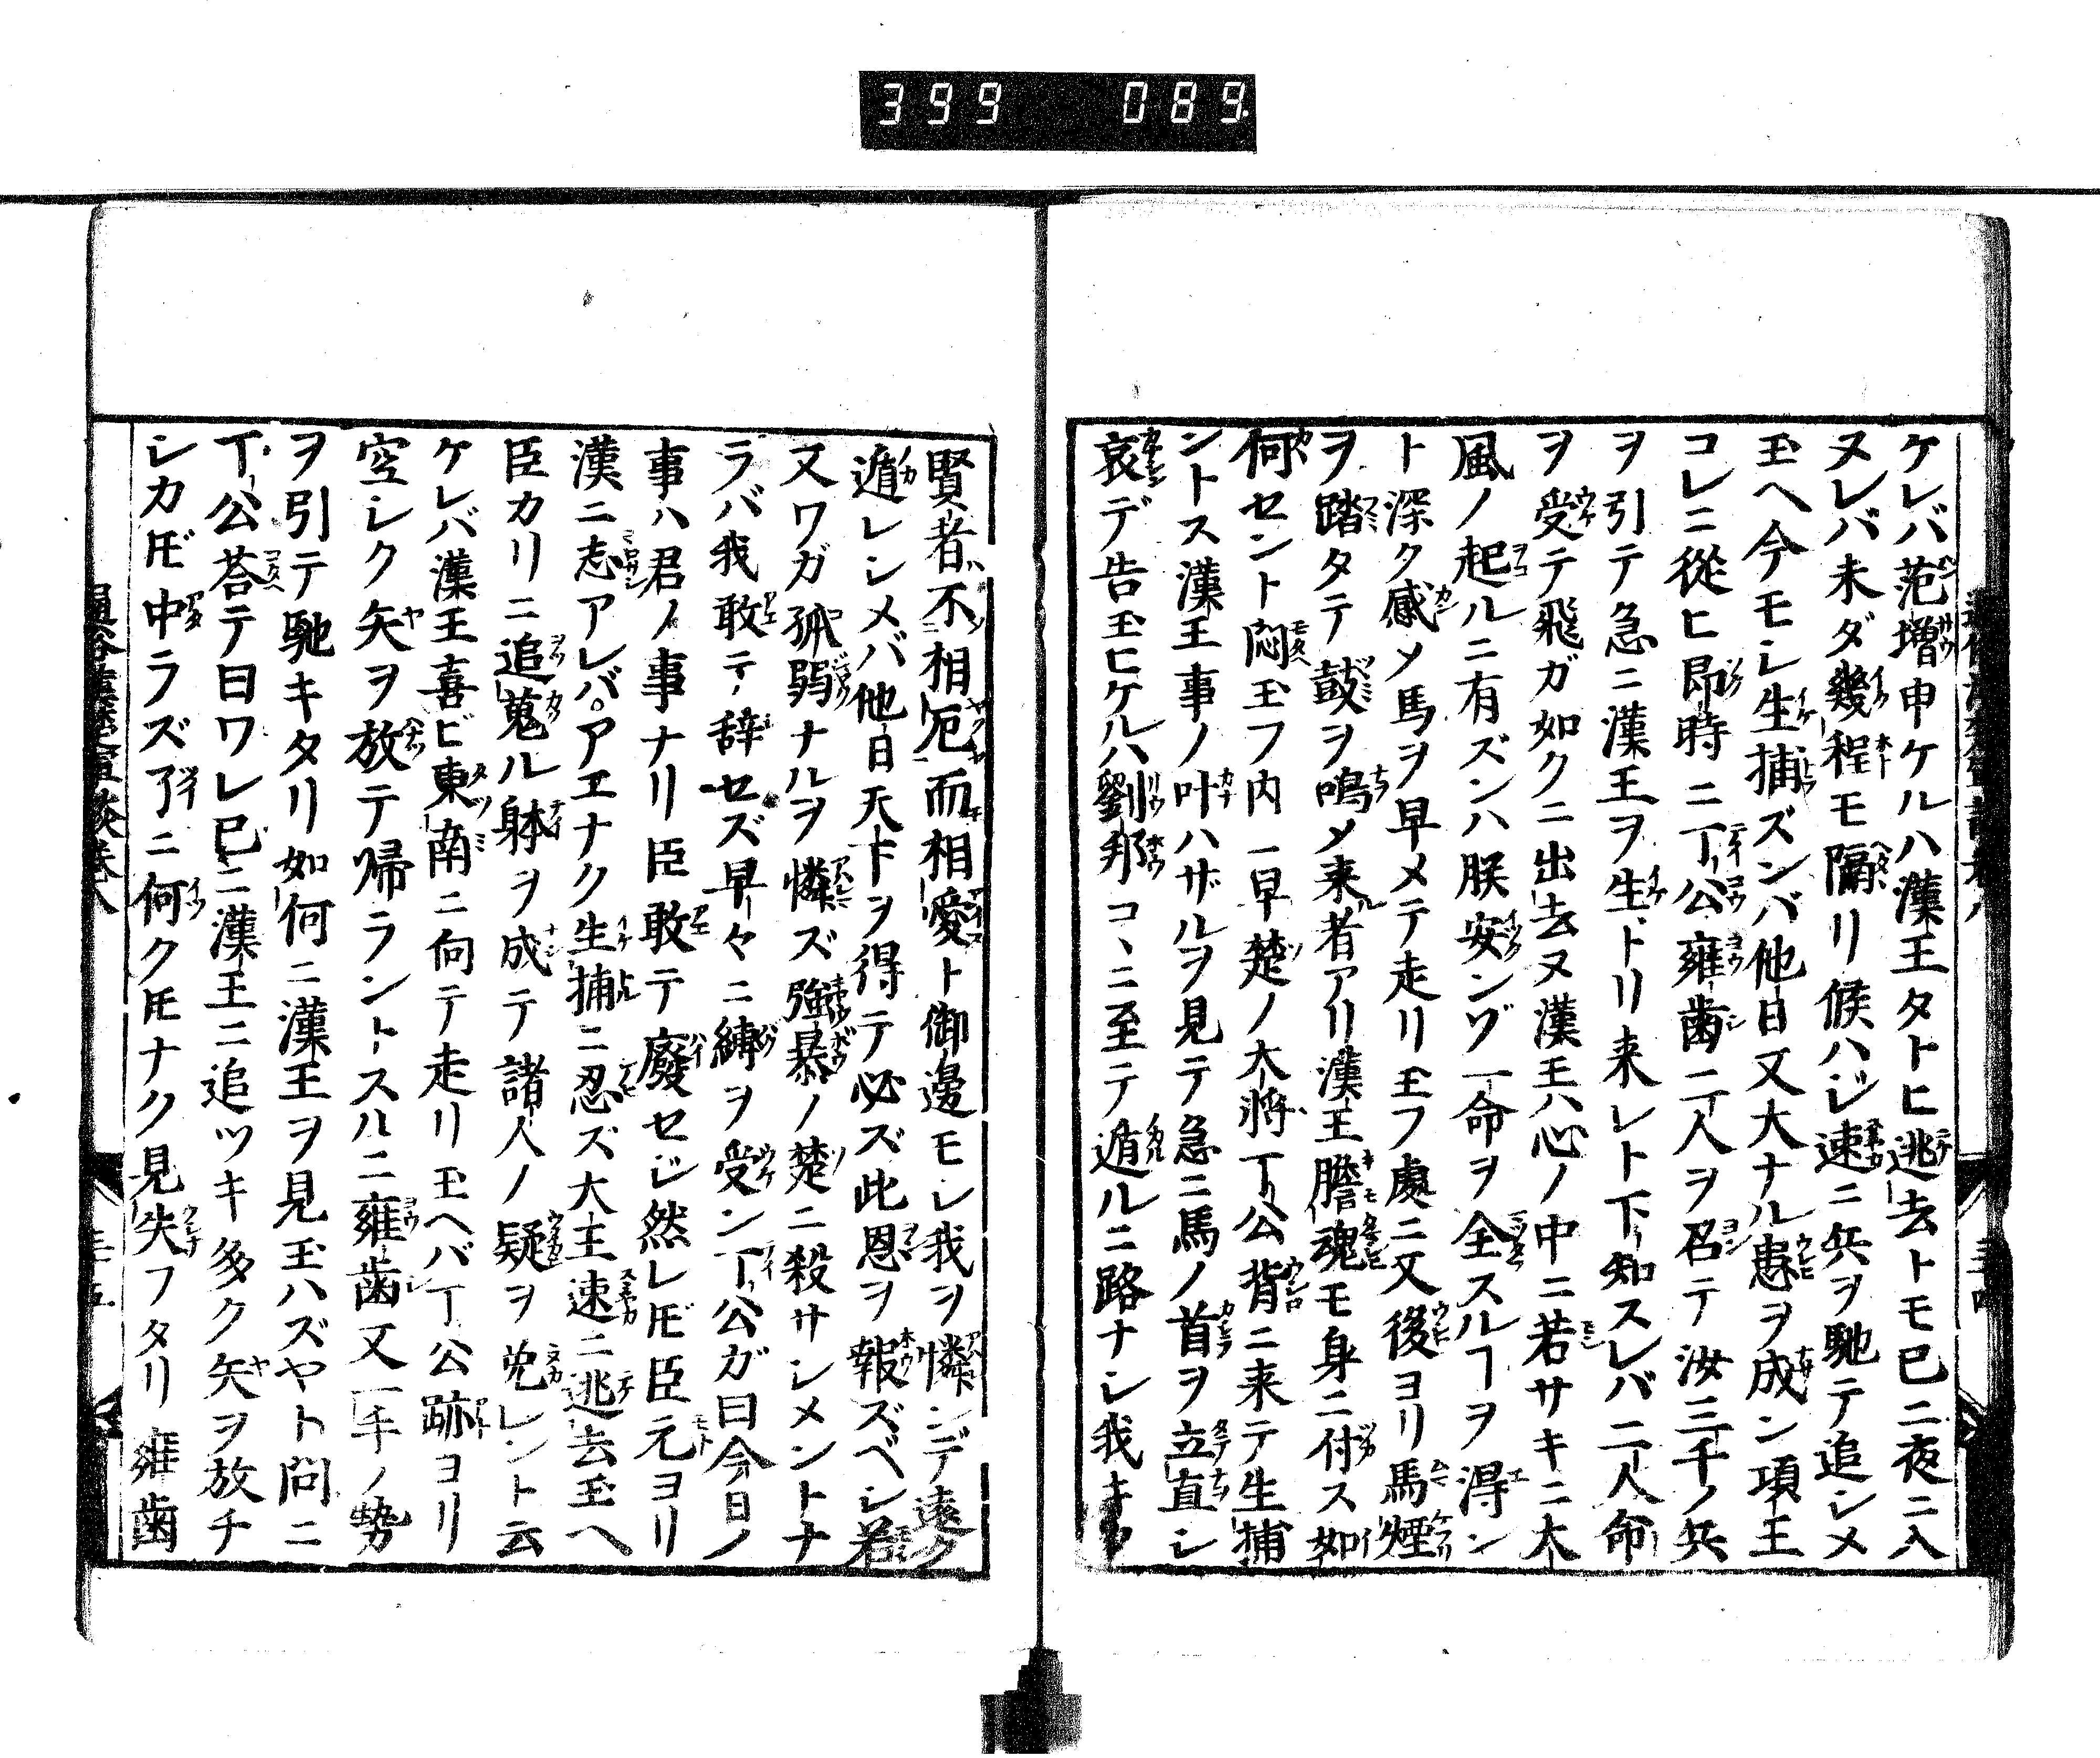 399 089
ケレバ范増申ケルハ漢王タトヒ逃去トモ已ニ夜ニ入
ヌレバ未ダ幾程モ隔リ候ハジ速ニ兵ヲ馳テ追シメ
玉ヘ今モシ生捕ズンバ他日又大ナル患ヲ成ン項王
コレニ從ヒ即時ニ丁公雍歯二人ヲ召テ汝三千ノ兵
ヲ引テ急ニ漢王ヲ生トリ来レト下知スレバ二人命
ヲ受テ飛ガ如クニ出去ヌ漢王ハ心ノ中ニ若サキニ大
風ノ起ルニ有ズンハ朕安ンゾ一命ヲ全スルヿヲ得ン
ト深ク感メ馬ヲ早メテ走リ玉フ處ニ又後ヨリ馬煙
ヲ踏タテ鼓ヲ鳴メ来者アリ漢王膽魂モ身ニ付ス如
何セント悶玉フ内ニ早楚ノ大將丁公背ニ来テ生捕
ントス漢王事ノ叶ハザルヲ見テ急ニ馬ノ首ヲ立直シ
哀デ告玉ヒケルハ劉邦コヽニ至テ遁ルニ路ナシ我キク
賢者不相厄而相愛ト御邊モシ我ヲ憐ンデ遠ク
遁レシメバ他日天下ヲ得テ必ズ此恩ヲ報ズベシ若
又ワガ孤弱ナルヲ憐ズ強暴ノ楚ニ殺サシメントナ
ラバ我敢テ辞セズ早々ニ縛ヲ受ン丁公ガ曰今日ノ
事ハ君ノ事ナリ臣敢テ廢セジ然レ𪜈臣元ヨリ
漢ニ志アレバアエナク生捕ニ忍ズ大王速ニ逃去玉ヘ
臣カリニ追蒐ル躰ヲ成テ諸人ノ疑ヲ免レント云
ケレバ漢王喜ビ東南ニ向テ走リ玉ヘバ丁公跡ヨリ
空シク矢ヲ放テ帰ラントスルニ雍歯又一手ノ勢
ヲ引テ馳キタリ如何ニ漢王ヲ見玉ハズヤト問ニ
丁公荅テ曰ワレ已ニ漢王ニ追ツキ多ク矢ヲ放チ
シカ𪜈中ラズ了ニ何ク𪜈ナク見失フタリ雍歯